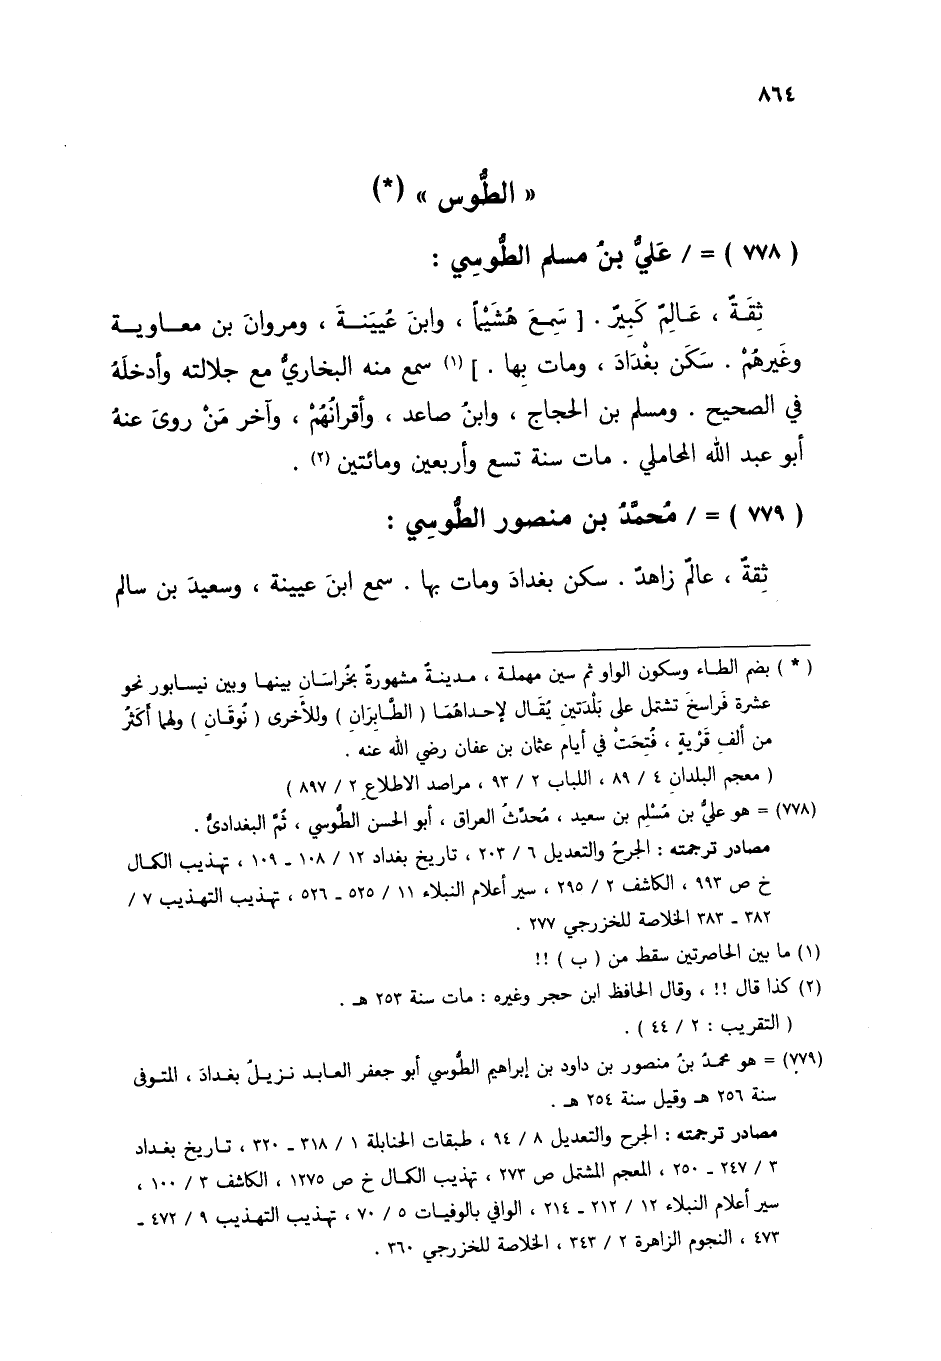 ٨٦٤
« الطُّوس » (*)
( ٧٧٨ ) = / عَليُّ بنُ مسلم الطُّوسِي :
ثِقَةٌ ، عَالِمٌ كَبِيرٌ . [ سَمِعَ هُشَيْماً ، وابنَ عُيَيَنَةَ ، ومروانَ بن معاوية
وغَيرهُمْ . سَكَن بغْدَادَ ، ومات بها . ] (١) سمع منه البخاريُّ مع جلالته وأدخلَهُ
في الصحيح . ومسلم بن الحجاج ، وابنُ صاعد ، وأقرانُهُمْ ، وآخر مَنْ روىَ عنهُ
أبو عبد الله المحاملي . مات سنة تسع وأربعين ومائتين (٢) .
( ٧٧٩ ) = / مُحمَّدُ بن منصور الطُّوسِي :
ثِقةٌ ، عالمٌ زاهدٌ . سكن بغدادَ ومات بها . سمع ابنَ عيينة ، وسعيدَ بن سالم
( * ) بضم الطاء وسكون الواو ثم سين مهملة ، مدينةٌ مشهورةٌ بخُراسَان بينها وبين نيسابور نحو
عشرة فَراسخَ تشتمل على بَلْدَتينِ يُقَال لإحداهُمَا ( الطَّابِرَانِ ) وللأخرى ( نُوقَانِ ) ولهما أَكَثرُ
من ألفِ قَرْيةٍ ، فُتِحَتْ في أيام عثمان بن عفان رضي الله عنه .
( معجم البلدان ٤ / ٨٩ ، اللباب ٢ / ٩٣ ، مراصد الاطلاع ٢ / ٨٩٧ )
(٧٧٨) = هو عليُّ بن مُسْلِم بن سعيد ، مُحدِّثُ العراق ، أبو الحسن الطُّوسي ، ثُمَّ البغداديُّ .
مصادر ترجمته : الجرحُ والتعديل ٦ / ٢٠٣ ، تاريخ بغداد ١٢ / ١٠٨ ـ ١٠٩ ، تهذيب الكمال
خ ص ٩٩٣ ، الكاشف ٢ / ٢٩٥ ، سير أعلام النبلاء ١١ / ٥٢٥ ـ ٥٢٦ ، تهذيب التهذيب ٧ /
٣٨٢ ـ ٣٨٣ الخلاصة للخزرجي ٢٧٧ .
(١) ما بين الحاصرتين سقط من ( ب ) !!
(٢) كذا قال !! ، وقال الحافظ ابن حجر وغيره : مات سنة ٢٥٣ هـ .
( التقريب : ٢ / ٤٤ ) .
(٧٧٩) = هو محمدُ بنُ منصور بن داود بن إبراهيم الطُّوسي أبو جعفر العابد نزيلُ بغدادَ ، المتوفى
سنة ٢٥٦ هـ وقيل سنة ٢٥٤ هـ .
مصادر ترجمته : الجرح والتعديل ٨ / ٩٤ ، طبقات الحنابلة ١ / ٣١٨ ـ ٣٢٠ ، تاريخ بغداد
٣ / ٢٤٧ ـ ٢٥٠ ، المعجم المشتمل ص ٢٧٣ ، تهذيب الكمال خ ص ١٢٧٥ ، الكاشف ٣ / ١٠٠ ،
سير أعلام النبلاء ١٢ / ٢١٢ ـ ٢١٤ ، الوافي بالوفيات ٥ / ٧٠ ، تهذيب التهذيب ٩ / ٤٧٢ ـ
٤٧٣ ، النجوم الزاهرة ٢ / ٣٤٣ ، الخلاصة للخزرجي ٣٦٠ .